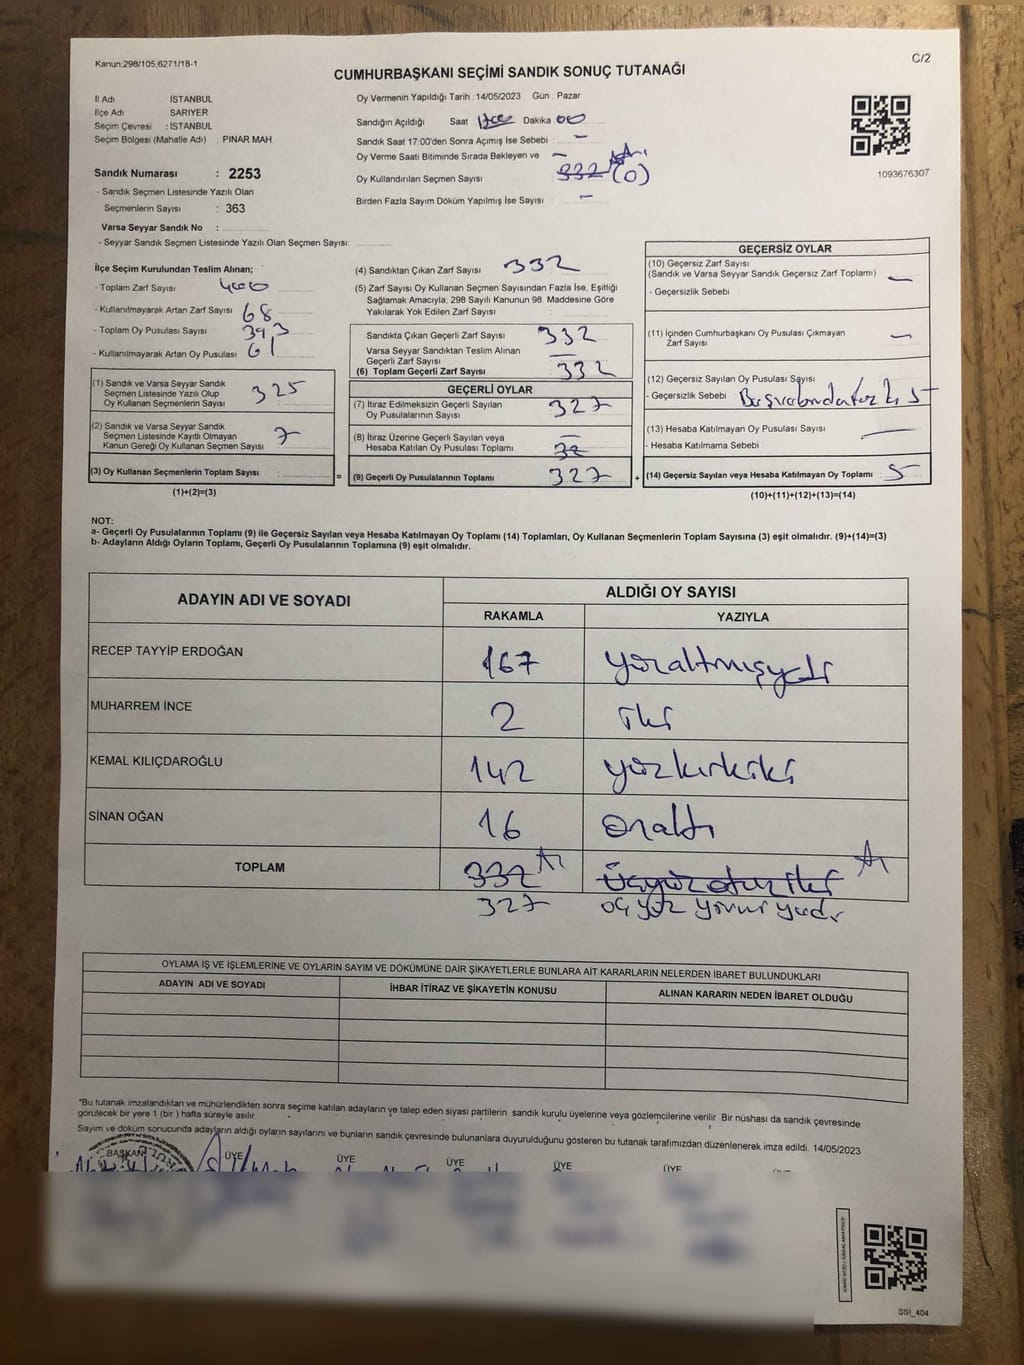 Kanun:298/105,6271/18-1
C/2
CUMHURBAŞKANI SEÇİMİ SANDIK SONUÇ TUTANAĞI
İl Adı İSTANBUL
İlçe Adı SARIYER
Seçim Çevresi : İSTANBUL
Seçim Bölgesi (Mahalle Adı) : PINAR MAH
Sandık Numarası : 2253
- Sandık Seçmen Listesinde Yazılı Olan
Seçmenlerin Sayısı : 363
Varsa Seyyar Sandık No :
- Seyyar Sandık Seçmen Listesinde Yazılı Olan Seçmen Sayısı:
Oy Vermenin Yapıldığı Tarih : 14/05/2023 Gün : Pazar
Sandığın Açıldığı Saat Dakika 00
Sandık Saat 17:00'den Sonra Açımış İse Sebebi : -
Oy Verme Saati Bitiminde Sırada Bekleyen ve -
Oy Kullandırılan Seçmen Sayısı 332 (0)
Birden Fazla Sayım Döküm Yapılmış İse Sayısı : -
1093676307
İlçe Seçim Kurulundan Teslim Alınan;
- Toplam Zarf Sayısı 400
- Kullanılmayarak Artan Zarf Sayısı 68
- Toplam Oy Pusulası Sayısı 393
- Kullanılmayarak Artan Oy Pusulası 61
(1) Sandık ve Varsa Seyyar Sandık
Seçmen Listesinde Yazılı Olup
Oy Kullanan Seçmenlerin Sayısı 325
(2) Sandık ve Varsa Seyyar Sandık
Seçmen Listesinde Kayıtlı Olmayan
Kanun Gereği Oy Kullanan Seçmen Sayısı 7
(3) Oy Kullanan Seçmenlerin Toplam Sayısı
(1)+(2)=(3)
(4) Sandıktan Çıkan Zarf Sayısı 332
(5) Zarf Sayısı Oy Kullanan Seçmen Sayısından Fazla İse, Eşitliği
Sağlamak Amacıyla, 298 Sayılı Kanunun 98. Maddesine Göre
Yakılarak Yok Edilen Zarf Sayısı :
Sandıkta Çıkan Geçerli Zarf Sayısı 332
Varsa Seyyar Sandıktan Teslim Alınan
Geçerli Zarf Sayısı -
(6) Toplam Geçerli Zarf Sayısı 332
GEÇERLİ OYLAR
(7) İtiraz Edilmeksizin Geçerli Sayılan
Oy Pusulalarının Sayısı 327
(8) İtiraz Üzerine Geçerli Sayılan veya -
Hesaba Katılan Oy Pusulası Toplamı
= (9) Geçerli Oy Pusulalarının Toplamı 327 +
GEÇERSİZ OYLAR
(10) Geçersiz Zarf Sayısı
(Sandık ve Varsa Seyyar Sandık Geçersiz Zarf Toplamı) -
- Geçersizlik Sebebi :
(11) İçinden Cumhurbaşkanı Oy Pusulası Çıkmayan
Zarf Sayısı -
(12) Geçersiz Sayılan Oy Pusulası Sayısı
- Geçersizlik Sebebi 5
(13) Hesaba Katılmayan Oy Pusulası Sayısı -
- Hesaba Katılmama Sebebi
(14) Geçersiz Sayılan veya Hesaba Katılmayan Oy Toplamı : 5
(10)+(11)+(12)+(13)=(14)
NOT:
a- Geçerli Oy Pusulalarının Toplamı (9) ile Geçersiz Sayılan veya Hesaba Katılmayan Oy Toplamı (14) Toplamları, Oy Kullanan Seçmenlerin Toplam Sayısına (3) eşit olmalıdır. (9)+(14)=(3)
b- Adayların Aldığı Oyların Toplamı, Geçerli Oy Pusulalarının Toplamına (9) eşit olmalıdır.
ADAYIN ADI VE SOYADI
ALDIĞI OY SAYISI
RAKAMLA YAZIYLA
RECEP TAYYİP ERDOĞAN 167 yüzaltmışyedi
MUHARREM İNCE 2 iki
KEMAL KILIÇDAROĞLU 142 yüzkırkiki
SİNAN OĞAN 16 onaltı
TOPLAM 332 üçyüzotuziki
327 üç yüz yirmi yedi
OYLAMA İŞ VE İŞLEMLERİNE VE OYLARIN SAYIM VE DÖKÜMÜNE DAİR ŞİKAYETLERLE BUNLARA AİT KARARLARIN NELERDEN İBARET BULUNDUKLARI
ADAYIN ADI VE SOYADI İHBAR İTİRAZ VE ŞİKAYETİN KONUSU ALINAN KARARIN NEDEN İBARET OLDUĞU
"Bu tutanak imzalandıktan ve mühürlendikten sonra seçime katılan adayların ve talep eden siyasi partilerin sandık kurulu üyelerine veya gözlemcilerine verilir. Bir nüshası da sandık çevresinde
görülecek bir yere 1 (bir ) hafta süreyle asılır
Sayım ve döküm sonucunda adayların aldığı oyların sayılarını ve bunların sandık çevresinde bulunanlara duyurulduğunu gösteren bu tutanak tarafımızdan düzenlenerek imza edildi. 14/05/2023
BAŞKAN ÜYE ÜYE ÜYE ÜYE ÜYE
SSI_404